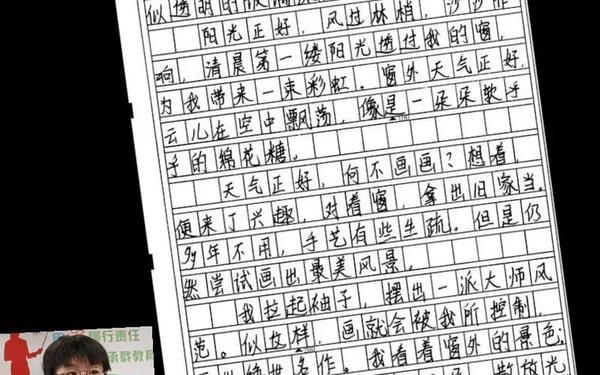 似透明的玻璃
阳光正好，风过林梢，沙沙作
响，清晨第一缕阳光透过我的窗，
为我带来一束彩虹。窗外天气正好，
云儿在空中飘荡，像是一朵朵软乎
乎的绵花糖。
天气正好，何不画画？想着，
便来了兴趣，对着窗，拿出旧家当。
多年不用，手艺有些生疏。但是仍
然尝试画出最美风景。
我拉起袖子，摆出一派大师风
范。似这样，画就会被我所控制，
绝世名作。我看着窗外的景色，
散放光
践行责任
承载教育